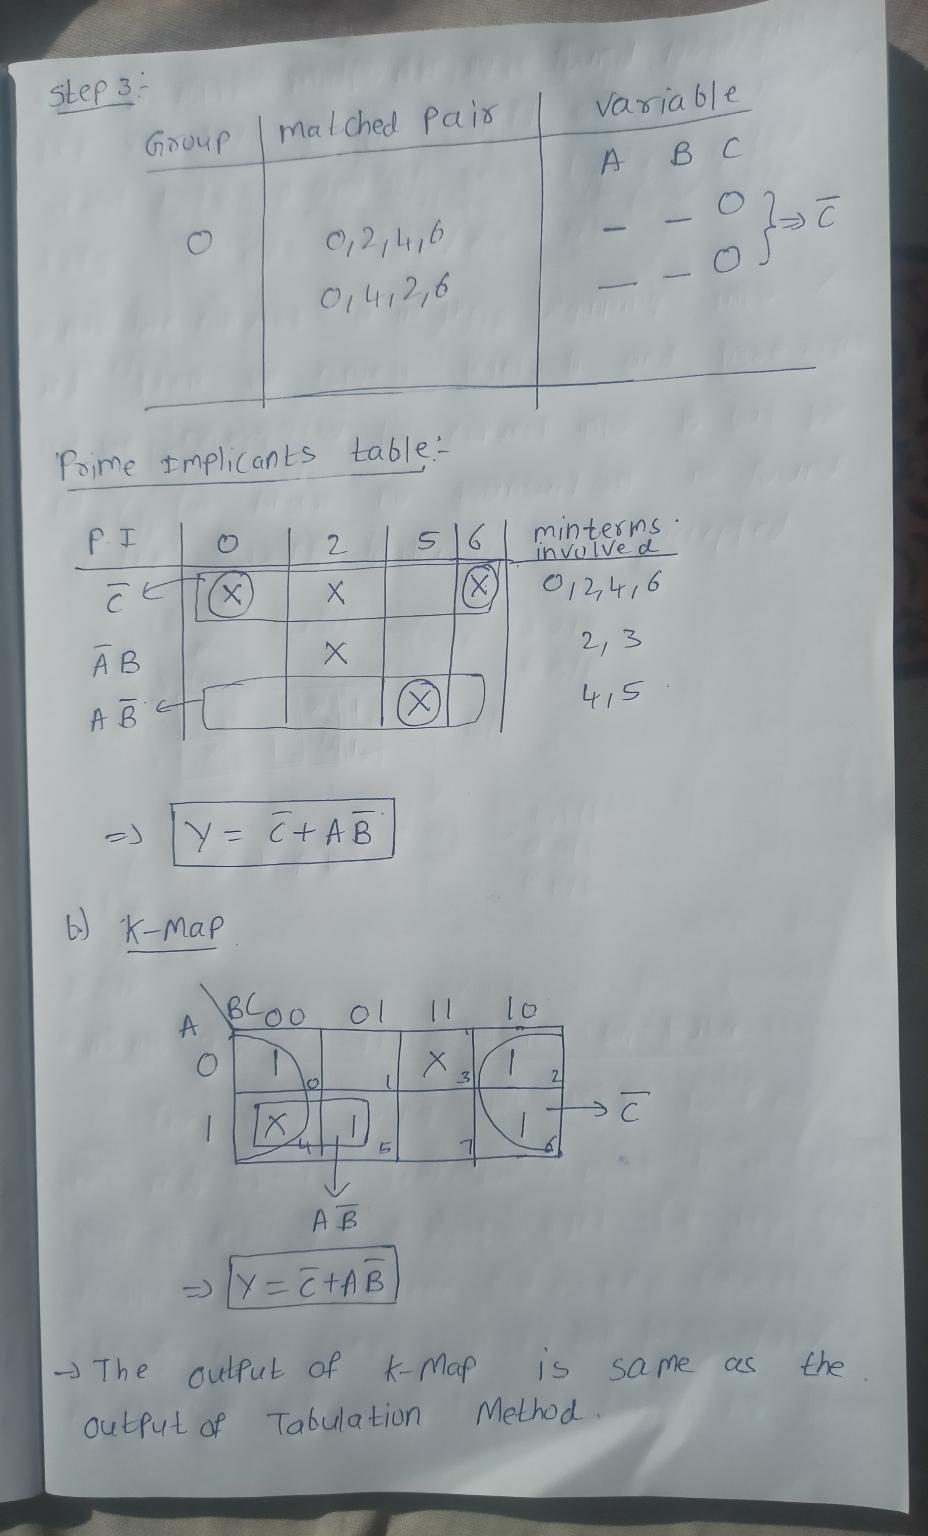 Step 3:-
Group | Matched Pair | Variable
A B C
0 0,2,4,6 - - 0 } => C̅
0,4,2,6 - - 0
Prime Implicants table:-
P.I | 0 | 2 | 5 | 6 | minterms involved
C̅ ← (X) X (X) 0,2,4,6
A̅ B X 2, 3
A B̅ ← (X) 4,5
=> Y = C̅ + A B̅
b) K-Map
A \ BC 00 01 11 10
0 1 0 1 X 3 1 2
1 X 4 1 5 7 1 6 → C̅
A B̅
=> Y = C̅ + A B̅
→ The output of K-Map is same as the
output of Tabulation Method.